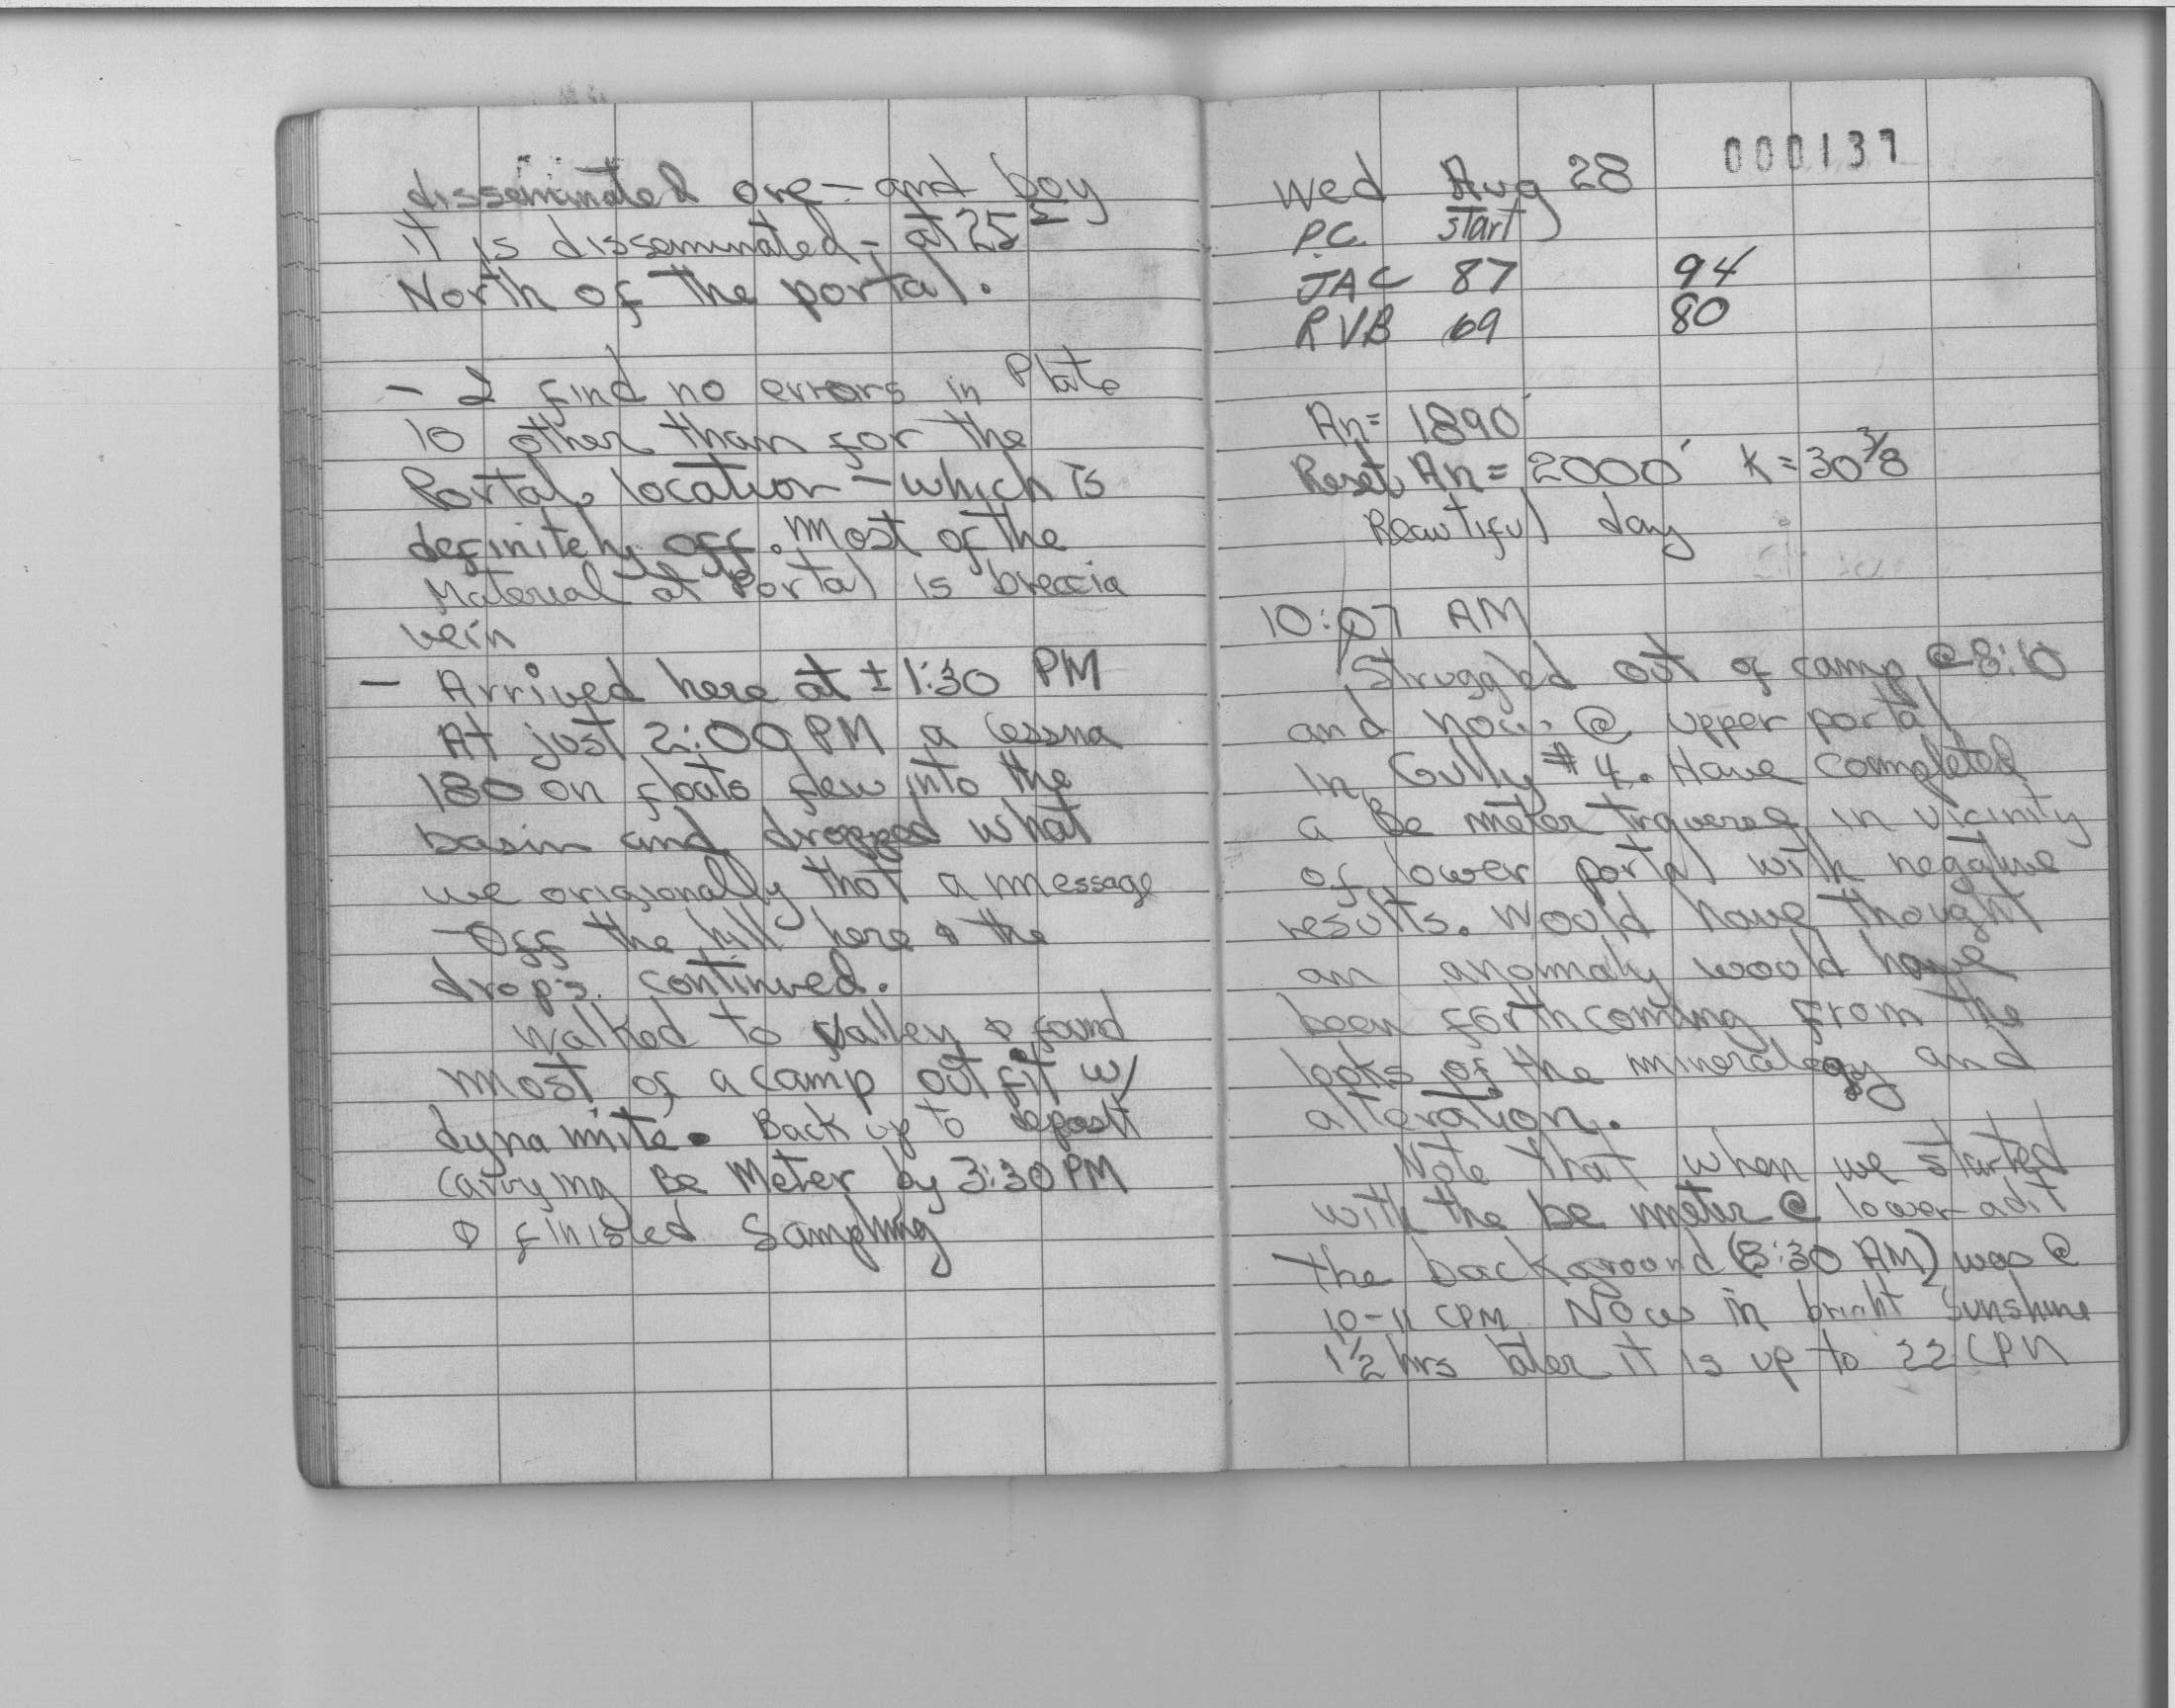 disseminated ore - and boy
it is disseminated - at 25
North of the portal.
- I find no errors in Plate
10 other than for the
Portal location - which is
definitely off. Most of the
Material at Portal is breccia
vein
- Arrived here at ± 1:30 PM
At just 2:00 PM a Cessna
180 on floats flew into the
basin and dropped what
we origionally thot a message
- Off the hill here & the
drops continued.
Walked to Valley & found
most of a camp outfit w/
dynamite. Back up to deposit
carrying Be Meter by 3:30 PM
& finished Sampling
000137
Wed Aug 28
P.C. Start
JAC 87 94
RVB 69 80
An = 1890'
Reset An = 2000' K = 30 3/8
Beautiful day
10:07 AM
Struggled out of camp @ 8:10
and now @ upper portal
in Gully #4. Have completed
a Be meter traverse in vicinity
of lower portal with negative
results. Would have thought
an anomaly would have
been forthcoming from the
looks of the mineralogy and
alteration.
Note that when we started
with the be meter @ lower adit
the background (8:30 AM) was @
10-11 CPM. Now in bright Sunshine
1 1/2 hrs later it is up to 22 CPM